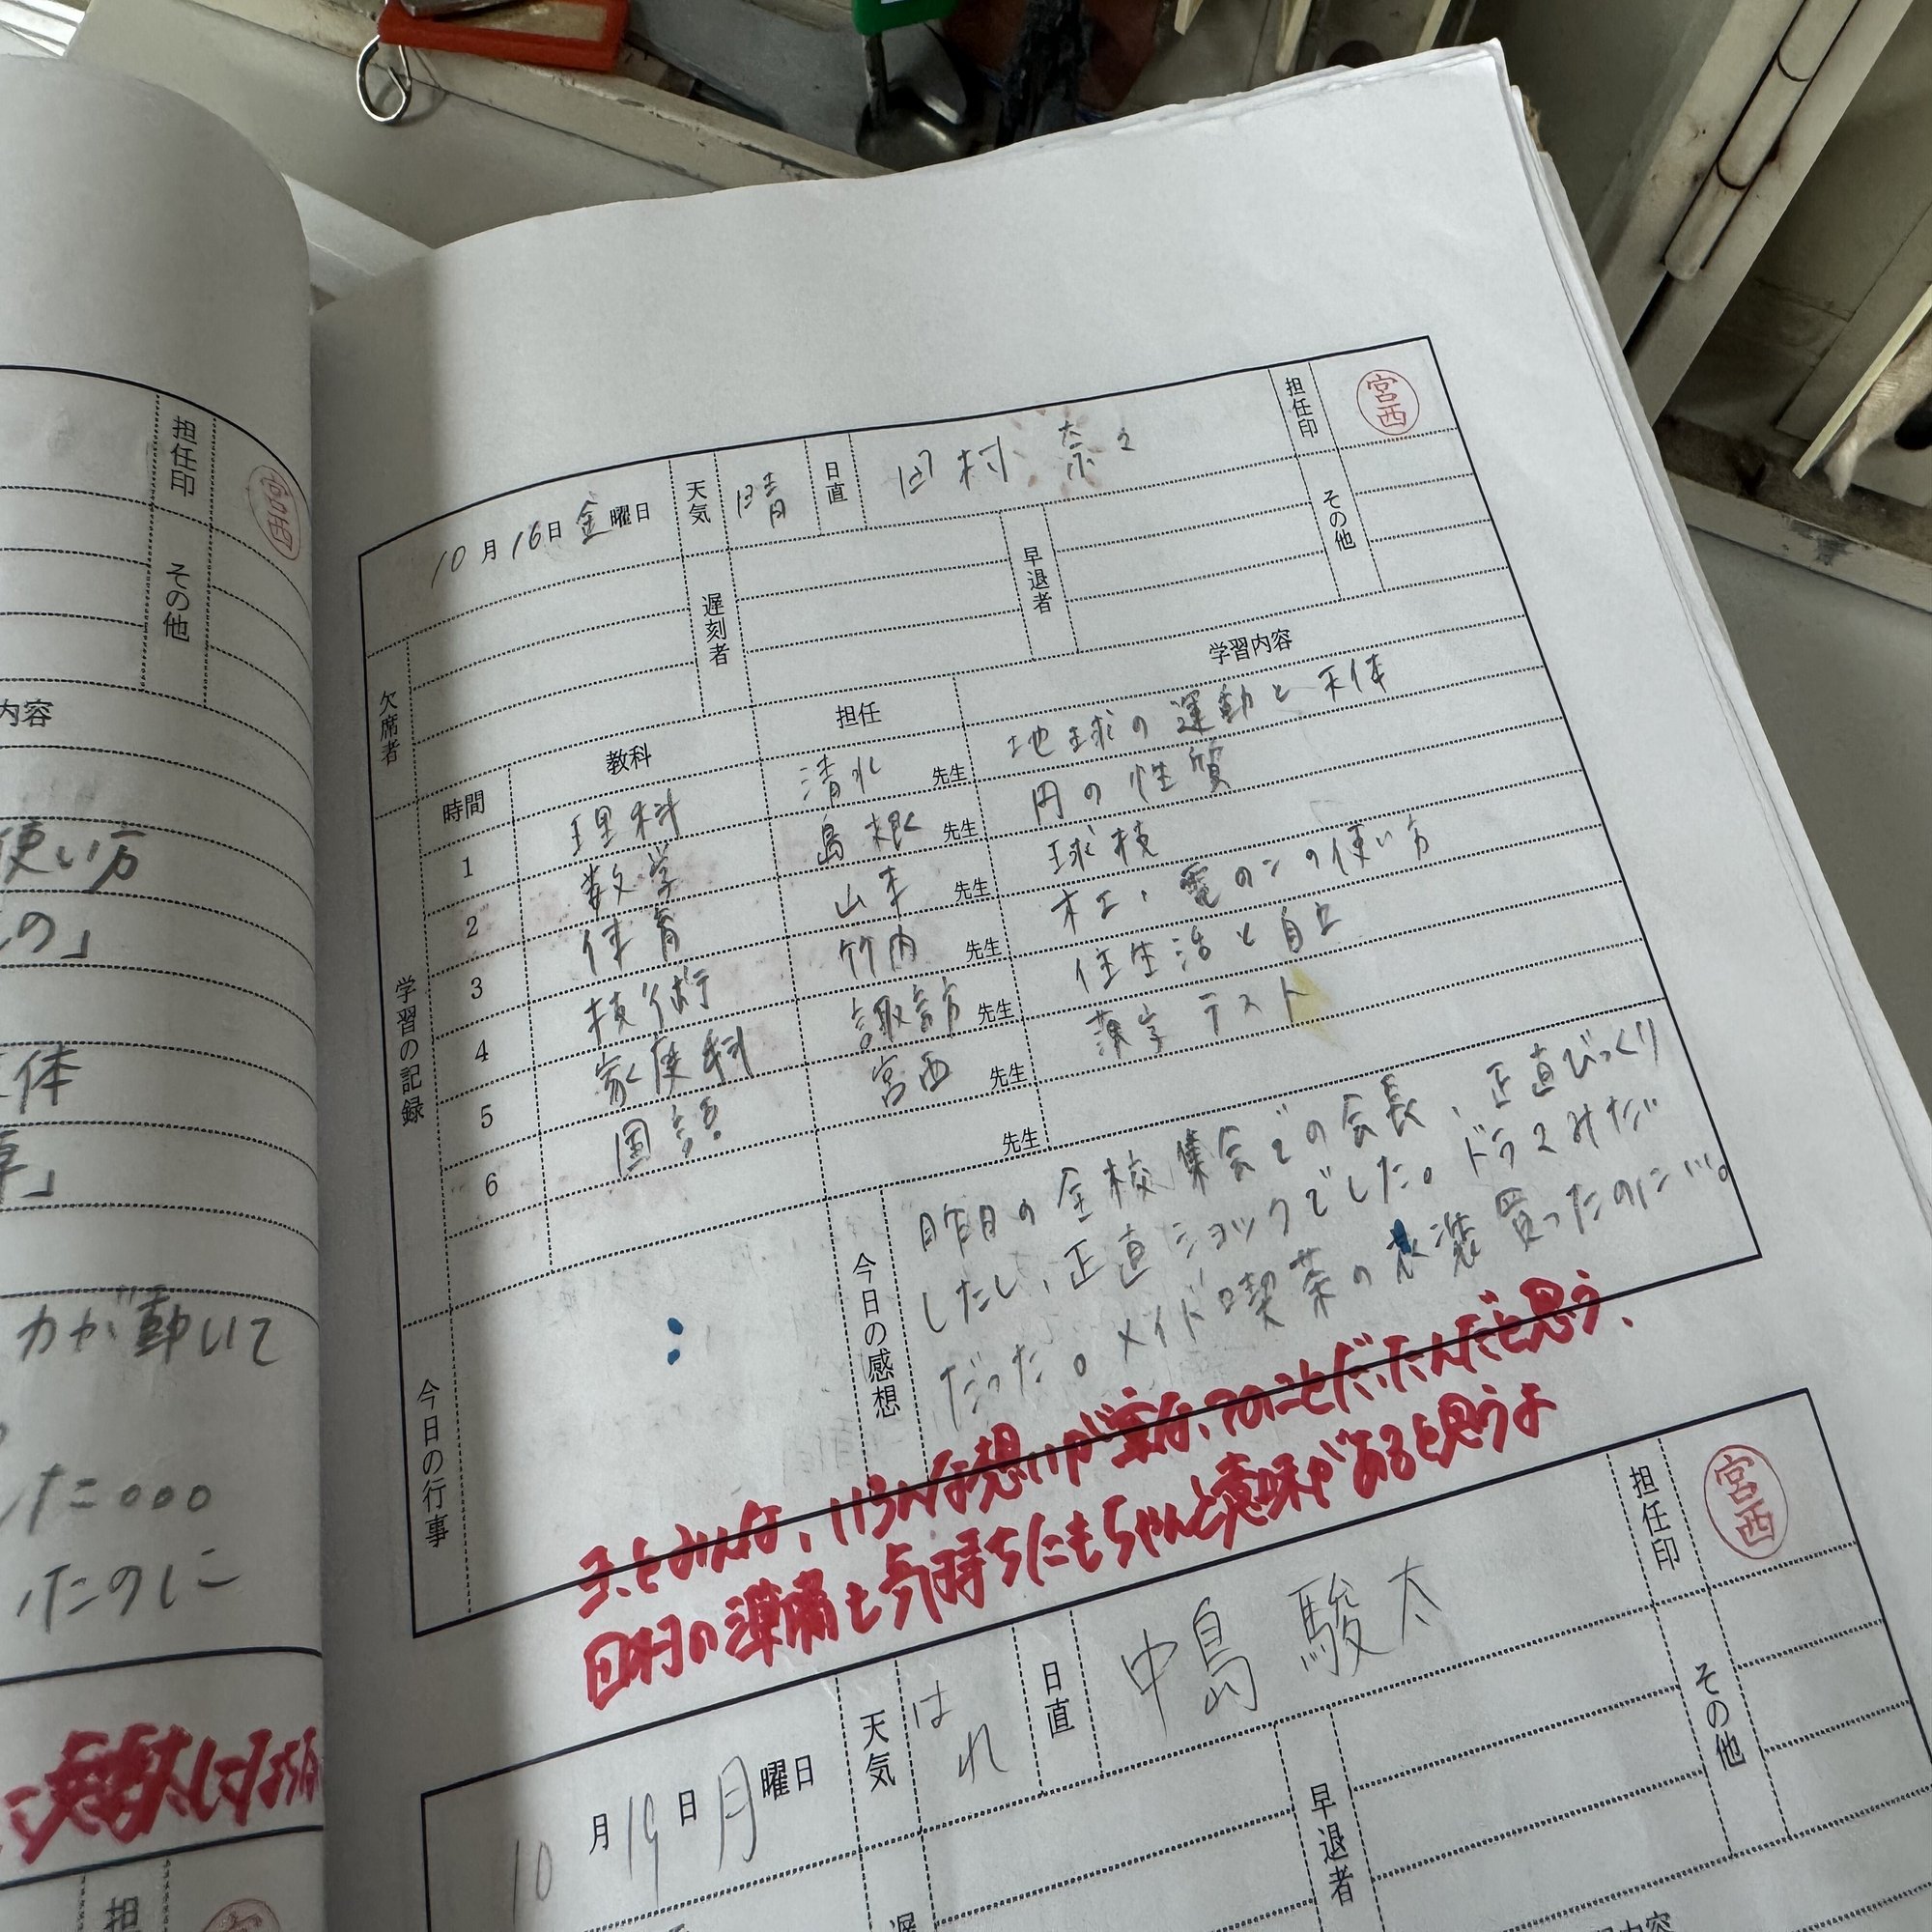 担任印
宮西
その他
内容
使い方
の」
体
」
力が動いて
した。。。
たのに
担
10月16日金曜日
天気
晴
日直
田村 奈々
担任印
宮西
欠席者
遅刻者
早退者
その他
学習の記録
時間 教科 担任 学習内容
1 理科 清水先生 地球の運動と天体
2 数学 島根先生 円の性質
3 体育 山本先生 球技
4 技術 竹内先生 木工・電ノコの使い方
5 家庭科 諏訪先生 住生活と自立
6 国語 宮西先生 漢字テスト
先生
今日の行事
:
今日の感想
昨日の全校集会での会長、正直びっくり
したし、正直ショックでした。ドラマみだ
だった。メイド喫茶の衣装買ったのに…。
きっとみんな、いろんな想いが重なってのことだったんだと思う、
田村の準備も気持ちにもちゃんと意味があると思うよ
10月19日月曜日
天気
はれ
日直
中島 駿太
担任印
宮西
早退者
その他
遅
内容